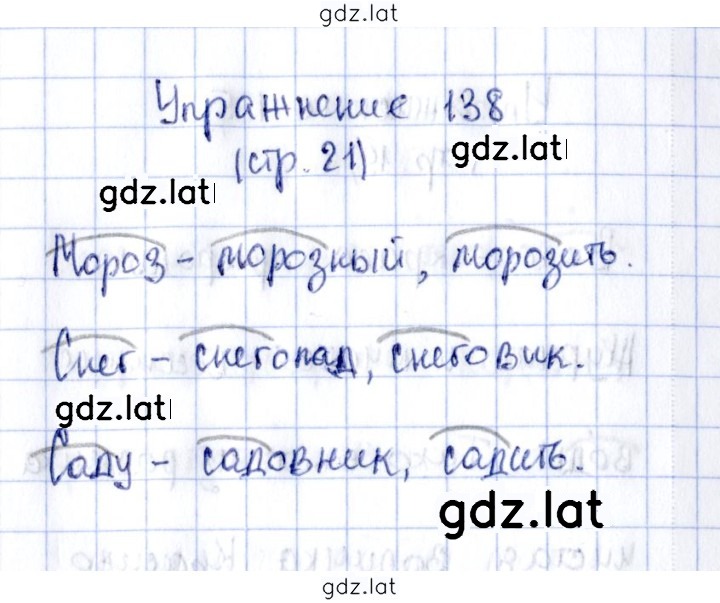 gdz.lat
Упражнение 138
gdz.lat
(стр. 21)
gdz.lat
Мороз - морозный, морозить.
Снег - снегопад, снеговик.
gdz.lat
Саду - садовник, садить.
gdz.lat
gdz.lat